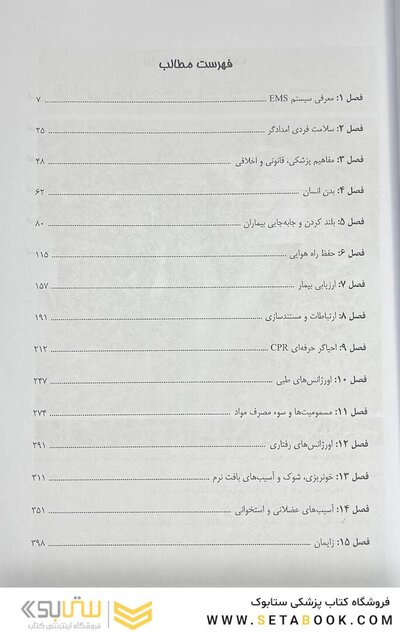 فهرست مطالب
فصل ۱: معرفی سیستم EMS ۷
فصل ۲: سلامت فردی امدادگر ۲۵
فصل ۳: مفاهیم پزشکی، قانونی و اخلاقی ۴۸
فصل ۴: بدن انسان ۶۲
فصل ۵: بلند کردن و جابه‌جایی بیماران ۸۰
فصل ۶: حفظ راه هوایی ۱۱۵
فصل ۷: ارزیابی بیمار ۱۵۷
فصل ۸: ارتباطات و مستندسازی ۱۹۱
فصل ۹: احیاگر حرفه‌ای CPR ۲۱۲
فصل ۱۰: اورژانس‌های طبی ۲۴۷
فصل ۱۱: مسمومیت‌ها و سوء مصرف مواد ۲۷۴
فصل ۱۲: اورژانس‌های رفتاری ۲۹۱
فصل ۱۳: خونریزی، شوک و آسیب‌های بافت نرم ۳۱۱
فصل ۱۴: آسیب‌های عضلانی و استخوانی ۳۵۱
فصل ۱۵: زایمان ۳۹۸
فروشگاه کتاب پزشکی ستابوک
WWW.SETABOOK.COM
ستابوک
فروشگاه اینترنتی کتاب